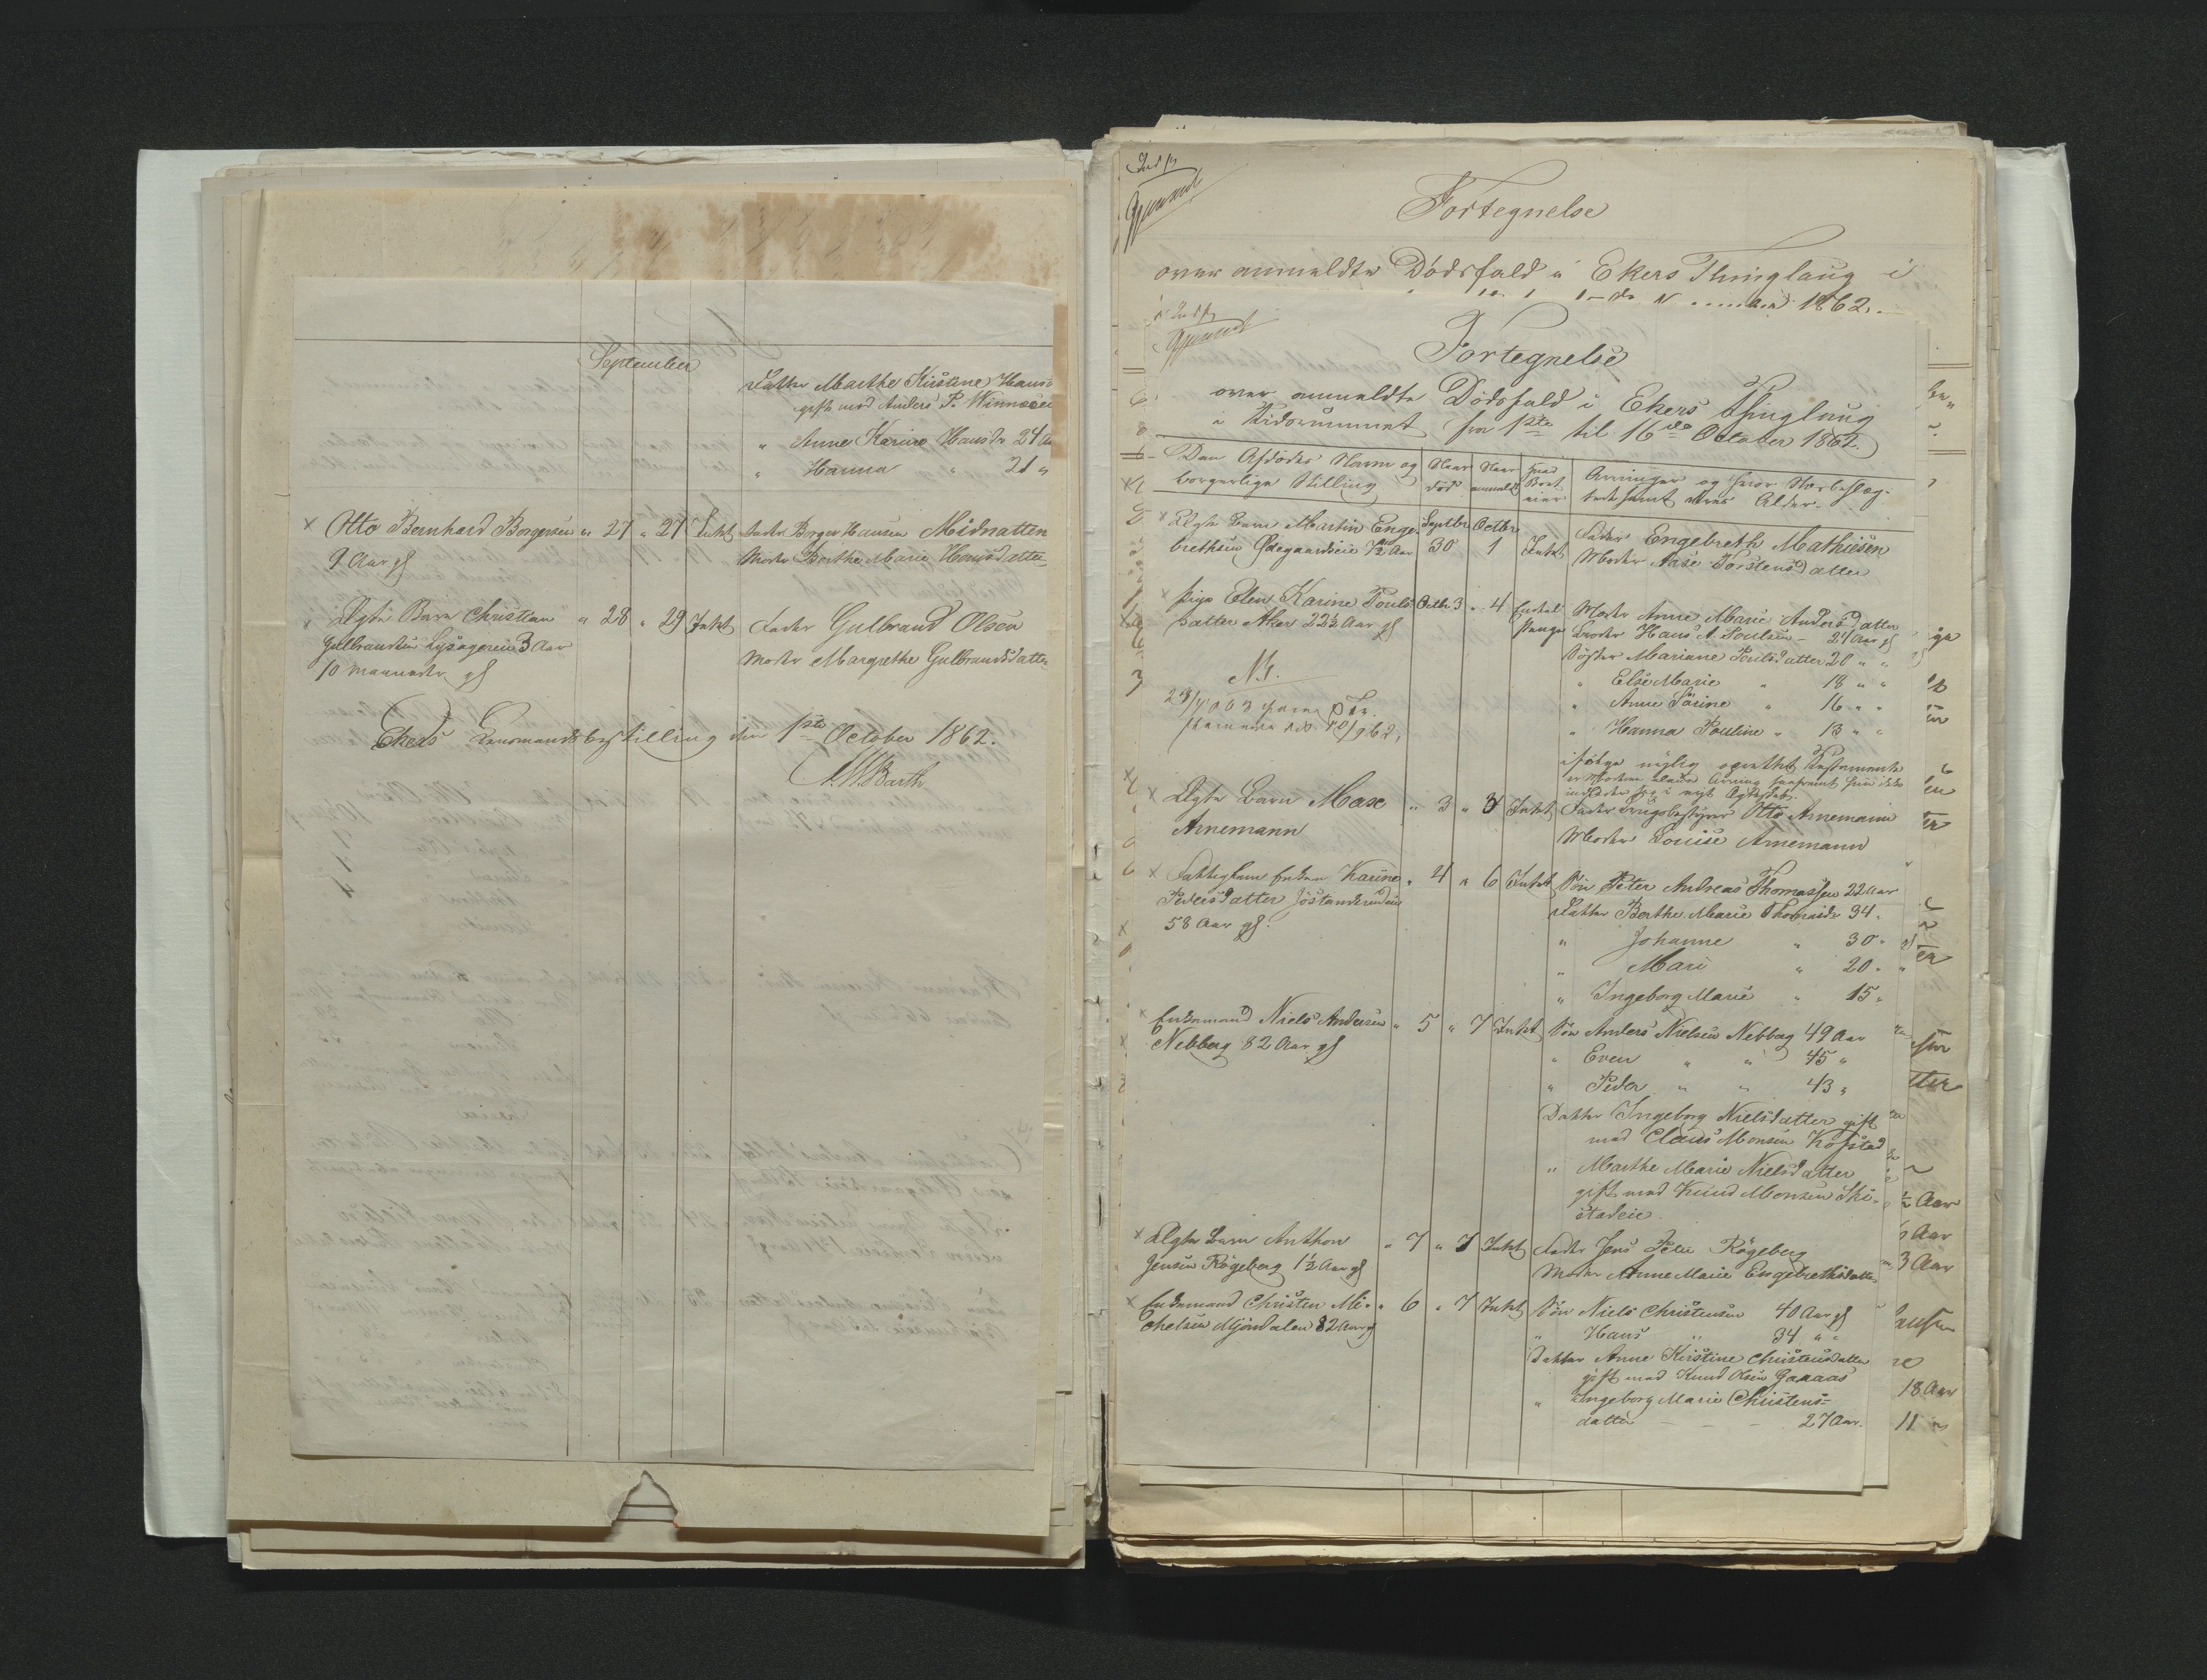 September
Datter Marthe Kirstine Hans-
gift med Anders P. Winnæseie
" Anne Karine Hansdr 24 Aar
" Hanna " 21 "
x Otto Bernhard Borgersen " 27 " 27 Intet Fader Borger Hansen Midnatten
9 Aar gl Moder Berthe Marie Hansdatter
x Ægte Barn Christian " 28 " 29 Intet Fader Gulbrand Olsen
Gulbrandsen 3 Aar Moder Margrethe Gulbrandsdatter
10 Maaneder gl
Ekers Lensmandsbestilling den 1ste October 1862.
Barth
Fortegnelse
over anmeldte Dødsfald i Ekers Thinglaug i
1862.
Fortegnelse
over anmeldte Dødsfald i Ekers Thinglaug
i Tidsrummet fra 1ste til 16de October 1862.
Den Afdødes Navn og Naar Naar Hvad Arvinger og hvor Nærbeslæg-
borgerlige Stilling død anmeldt Boet eier tede samt deres Alder.
x Ægte Barn Martin Enge- Septbr Octbr Fader Engebreth Mathiesen
brethsen Ødegaardseie 1/2 Aar 30 1 Intet Moder Aase Torstensdatter
x Pige Elen Karine Pouls- Octbr 3 " 4 Moder Anne Marie Andersdatter
datter Aker 22½ Aar gl Penge Broder Hans A. Poulsen - 24 Aar gl
Søster Mariane Poulsdatter 20 " "
" Else Marie " 18 " "
" Anne Sørine " 16 " "
" Hanna Pouline " 13 " "
N1.
x Ægte Barn Max " 3 " 4 Intet Fader Brugsbestyrer Otto Arnemann
Arnemann Moder Louise Arnemann
x Fattiglem Enken Karine " 4 " 6 Intet Søn Peter Andreas Thomassen 22 Aar
Pedersdatter Datter Berthe Marie Thomasdr 34 "
58 Aar gl. " Johanne " 30 "
" Mari " 20 "
" Ingeborg Marie " 15 "
x Enkemand Niels Andersen " 5 " 7 Intet Søn Anders Nielsen Nebberg 49 Aar
Nebberg 82 Aar gl " Even " " 45 "
" Peder " " 43 "
Datter Ingeborg Nielsdatter gift
med Claus Monsen Kopstad
" Marthe Marie Nielsdatter
gift med Knud Monsen Ski-
stadeie.
x Ægte Barn Anthon " 7 " 7 Intet Fader Jens Peter Røgeberg
Jensen Røgeberg 1½ Aar gl Moder Anne Marie Engebrethsdatter
x Enkemand Christen Mi- " 6 " 7 Intet Søn Niels Christensen 40 Aar gl
chelsen Mjøndalen 82 Aar gl " Hans " 34 " "
Datter Anne Kirstine Christensdatter
gift med Knud Olsen Gaaaas
" Ingeborg Marie Christens-
datter - - - 27 Aar.
½ Aar
6 Aar
3 Aar
18 Aar
11 "